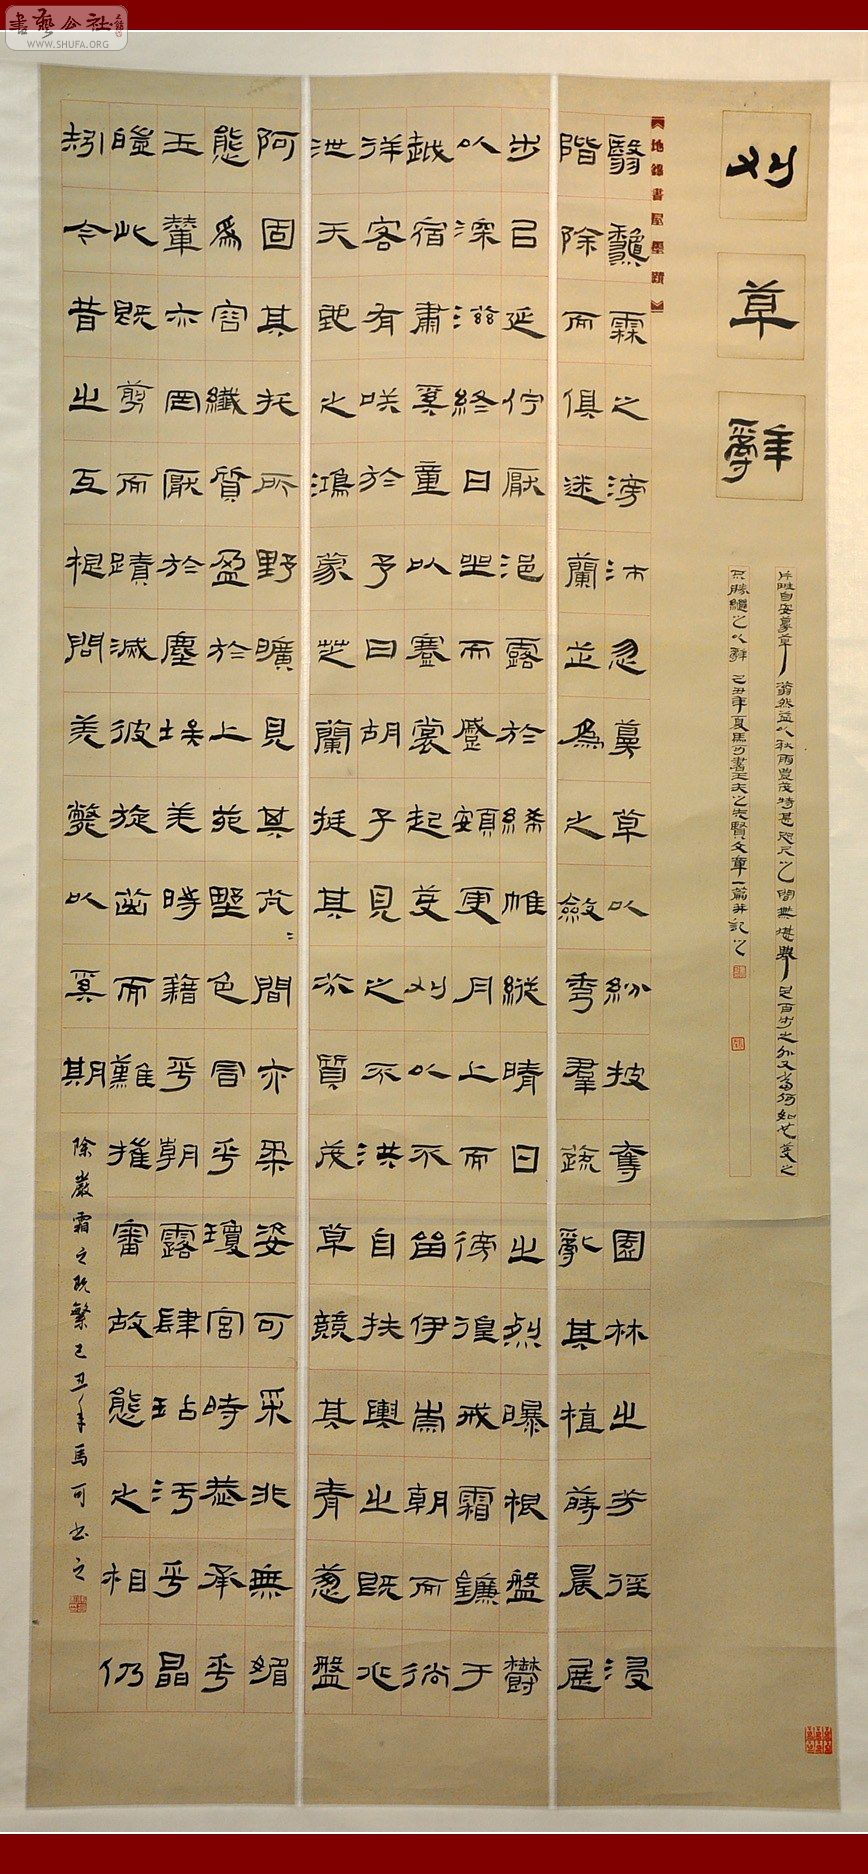 刈草辭
庄畦自安蔓草蓊然益以秋雨豐茂特甚咫尺之間無堪舉足百步之外又當何如也芟之
不勝繼之以辭 己丑年夏馬可書王夫之先賢文章一篇并記之
地錦書屋墨蹟
翳霖之滂沛忽蔓草以紛披奪園林之芳徑浸
階除而俱迷蘭芷為之斂秀群蔬亂其植蒔晨展
步以延佇厭浥露於絺帷縱晴日之烈曝根盤鬱
以深滋終日坐而蹙頞更月上而徬徨戒霜鐮于
越宿肅奚童以褰裳起芟刈以不留伊崇朝而尚
徉客有咲於予曰胡子見之不洪自扶輿之既兆
泄天之鴻蒙芝蘭挺其芬質茂草競其青蔥盤
阿固其托所野曠見其芃〻間亦柔姿可采非無媚
態為容纖質盈於上苑野色冒乎瓊宮時恭承乎
玉輦亦罔厭於塵埃羌時藉乎朝露肆玷污乎晶
皚此既剪而蹟滅彼旋茁而難摧審故態之相仍
矧今昔之互根問羌斃以奚期
除嚴霜之既繁己丑年馬可書之
書藝公社
WWW.SHUFA.ORG